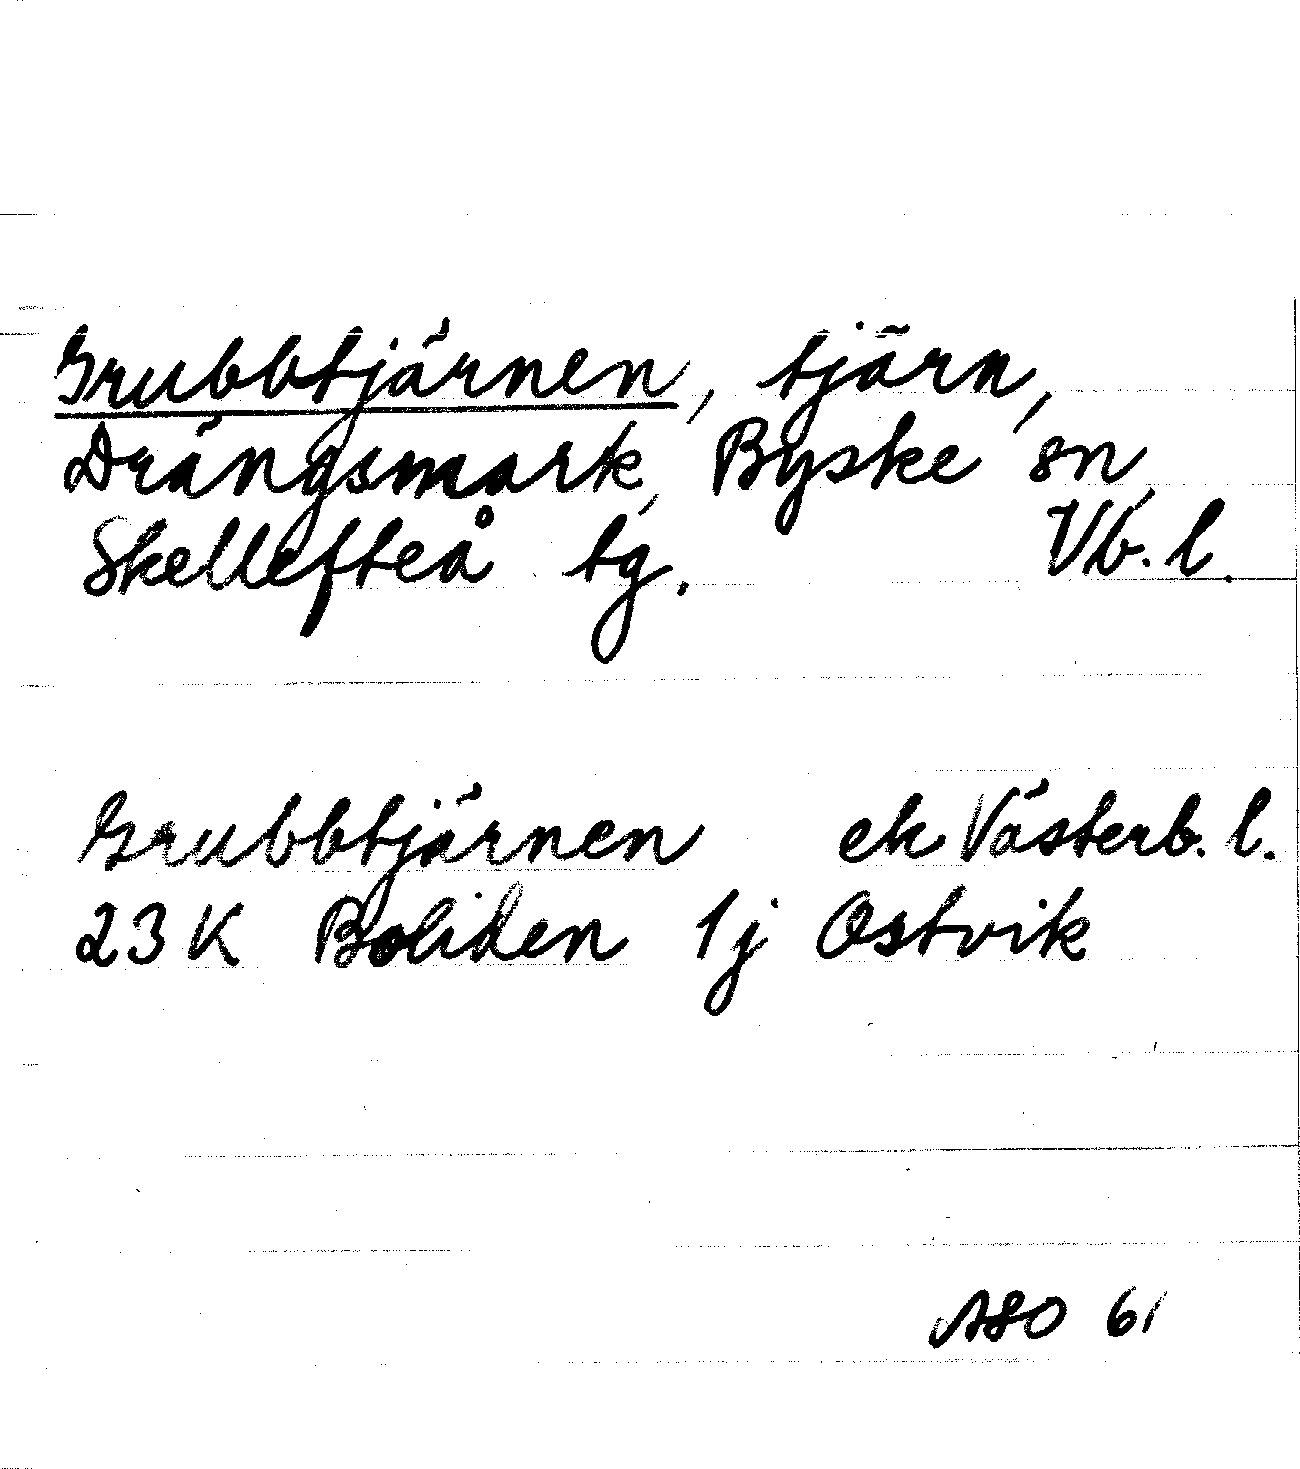 Grubbtjärnen, tjärn,
Drängsmark, Byske sn,
Skellefteå tg. Vb. l.
Grubbtjärnen ek Västerb. l.
23 K Boliden 1j Ostvik
ASO 61